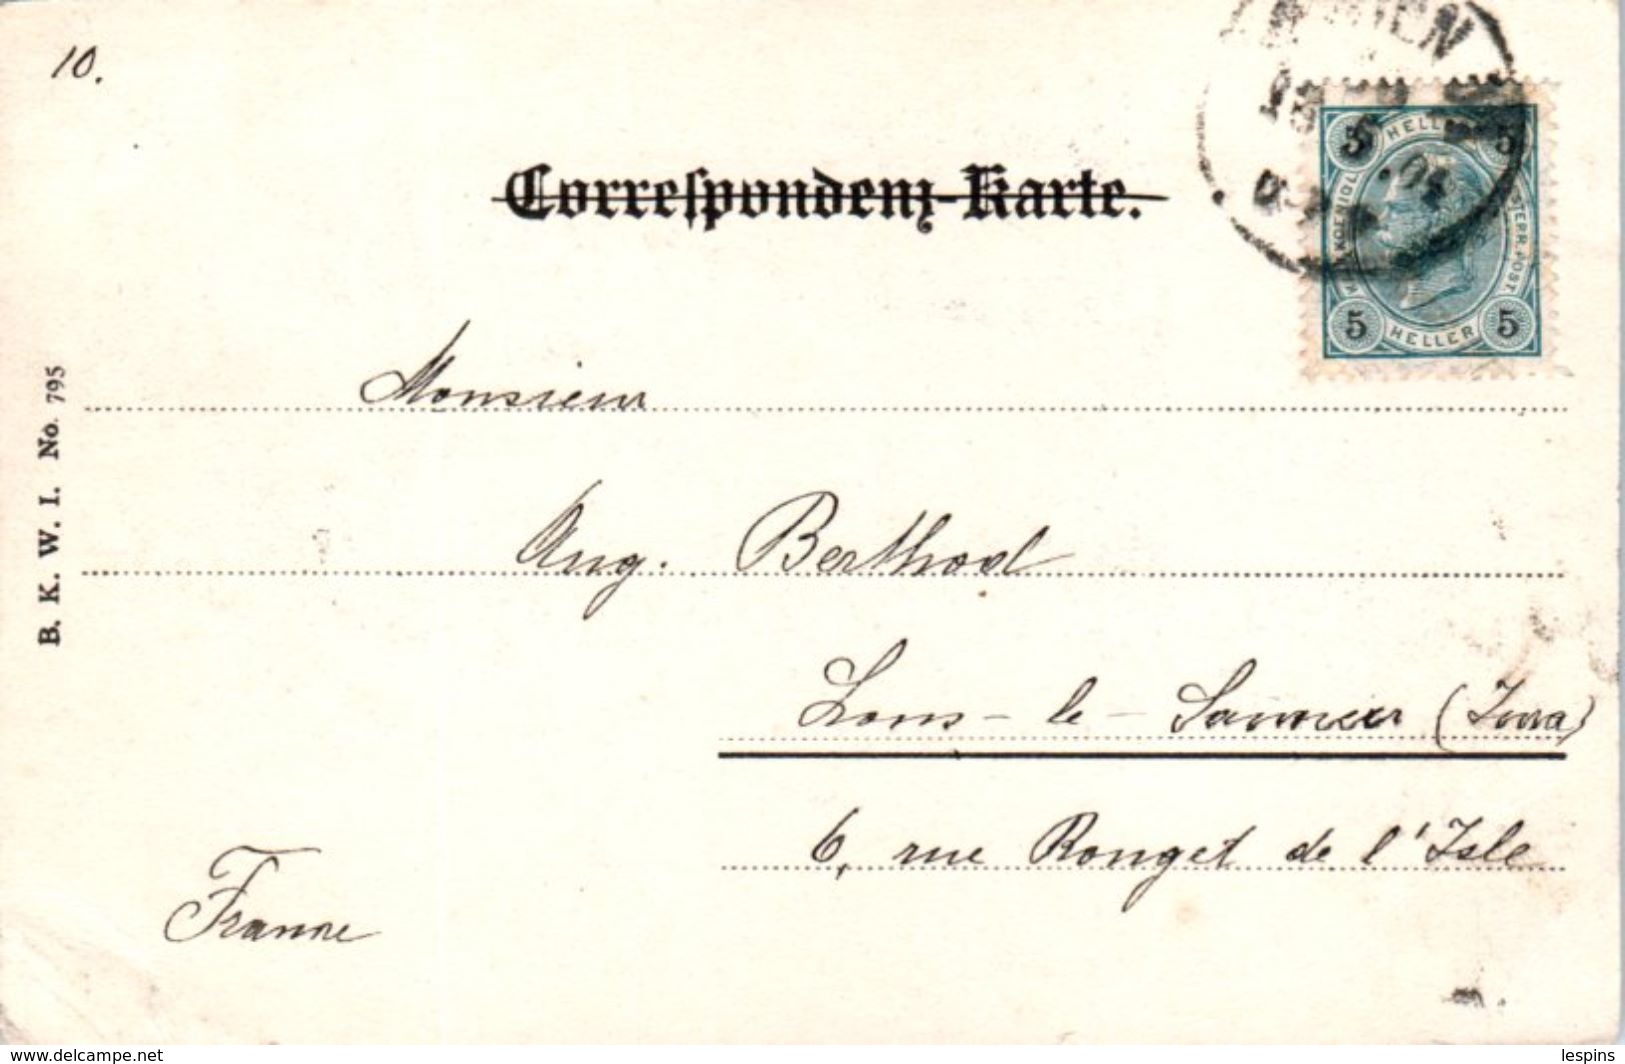 10.
WIEN
Correspondenz-Karte.
5 HELLER 5
5 HELLER 5
B. K. W. I. No. 795
Monsieur
Aug. Berthod
Lons-le-Saunier (Jura)
6, rue Rouget de l'Isle
France
www.delcampe.net
lespins